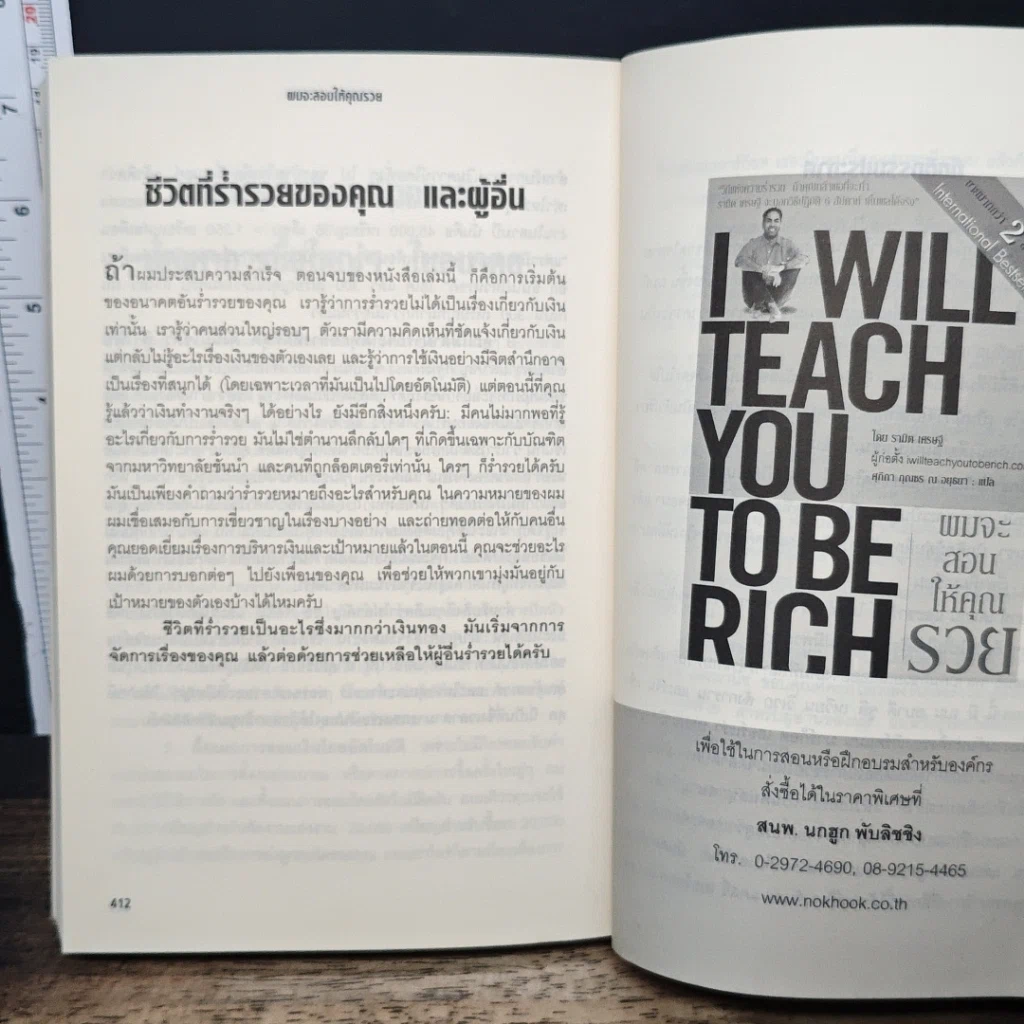 ผมจะสอนให้คุณรวย
ชีวิตที่ร่ำรวยของคุณ และผู้อื่น
ถ้าผมประสบความสำเร็จ ตอนจบของหนังสือเล่มนี้ ก็คือการเริ่มต้น
ของอนาคตอันร่ำรวยของคุณ เรารู้ว่าการร่ำรวยไม่ได้เป็นเรื่องเกี่ยวกับเงิน
เท่านั้น เรารู้ว่าคนส่วนใหญ่รอบๆ ตัวเรามีความคิดเห็นที่ชัดแจ้งเกี่ยวกับเงิน
แต่กลับไม่รู้อะไรเรื่องเงินของตัวเองเลย และรู้ว่าการใช้เงินอย่างมีจิตสำนึกอาจ
เป็นเรื่องที่สนุกได้ (โดยเฉพาะเวลาที่มันเป็นไปโดยอัตโนมัติ) แต่ตอนนี้ที่คุณ
รู้แล้วว่าเงินทำงานจริงๆ ได้อย่างไร ยังมีอีกสิ่งหนึ่งครับ: มีคนไม่มากพอที่รู้
อะไรเกี่ยวกับการร่ำรวย มันไม่ใช่ตำนานลึกลับใดๆ ที่เกิดขึ้นเฉพาะกับบัณฑิต
จากมหาวิทยาลัยชั้นนำ และคนที่ถูกล็อตเตอรี่เท่านั้น ใครๆ ก็ร่ำรวยได้ครับ
มันเป็นเพียงคำถามว่าร่ำรวยหมายถึงอะไรสำหรับคุณ ในความหมายของผม
ผมเชื่อเสมอกับการเชี่ยวชาญในเรื่องบางอย่าง และถ่ายทอดต่อให้กับคนอื่น
คุณยอดเยี่ยมเรื่องการบริหารเงินและเป้าหมายแล้วในตอนนี้ คุณจะช่วยอะไร
ผมด้วยการบอกต่อๆ ไปยังเพื่อนของคุณ เพื่อช่วยให้พวกเขามุ่งมั่นอยู่กับ
เป้าหมายของตัวเองบ้างได้ไหมครับ
ชีวิตที่ร่ำรวยเป็นอะไรซึ่งมากกว่าเงินทอง มันเริ่มจากการ
จัดการเรื่องของคุณ แล้วต่อด้วยการช่วยเหลือให้ผู้อื่นร่ำรวยได้ครับ
412
ขายมากกว่า 2
International Bestse
I WILL
TEACH
YOU
TO BE
RICH
โดย รามิต เศรษฐี
ผู้ก่อตั้ง iwillteachyoutoberich.co
สุภิดา กุญชร ณ อยุธยา : แปล
ผมจะ
สอน
ให้คุณ
รวย
เพื่อใช้ในการสอนหรือฝึกอบรมสำหรับองค์กร
สั่งซื้อได้ในราคาพิเศษที่
สนพ. นกฮูก พับลิชชิง
โทร. 0-2972-4690, 08-9215-4465
www.nokhook.co.th